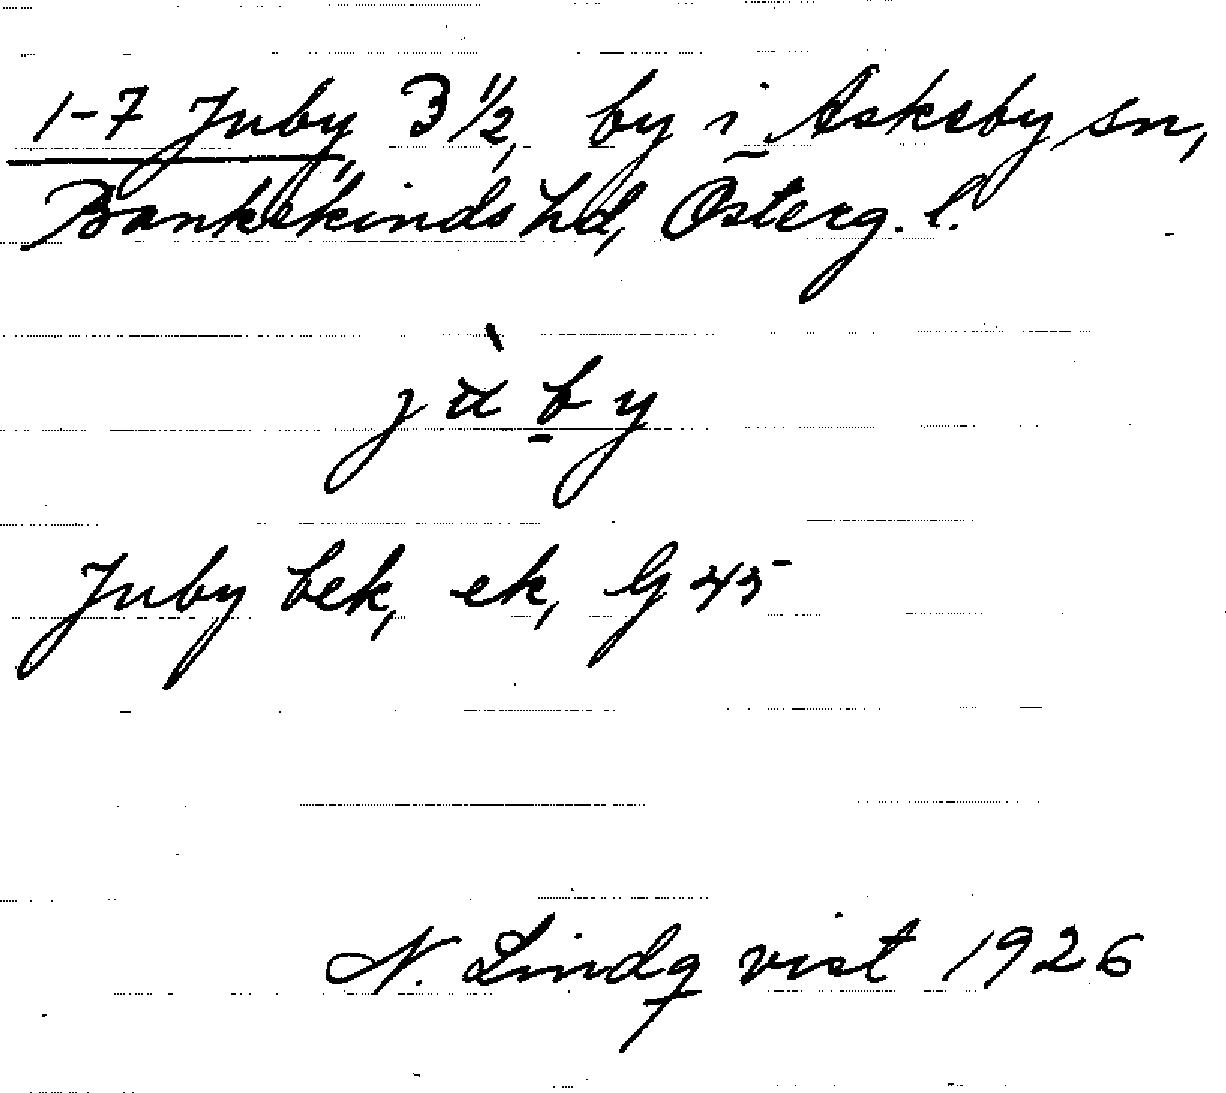 1-7 Juby, 3 1/2, by i Askeby sn,
Bankekinds hd, Österg. l.
jù by
Juby bek, ek, G 45
N. Lindqvist 1926